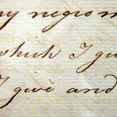 my negro
which I
I give and